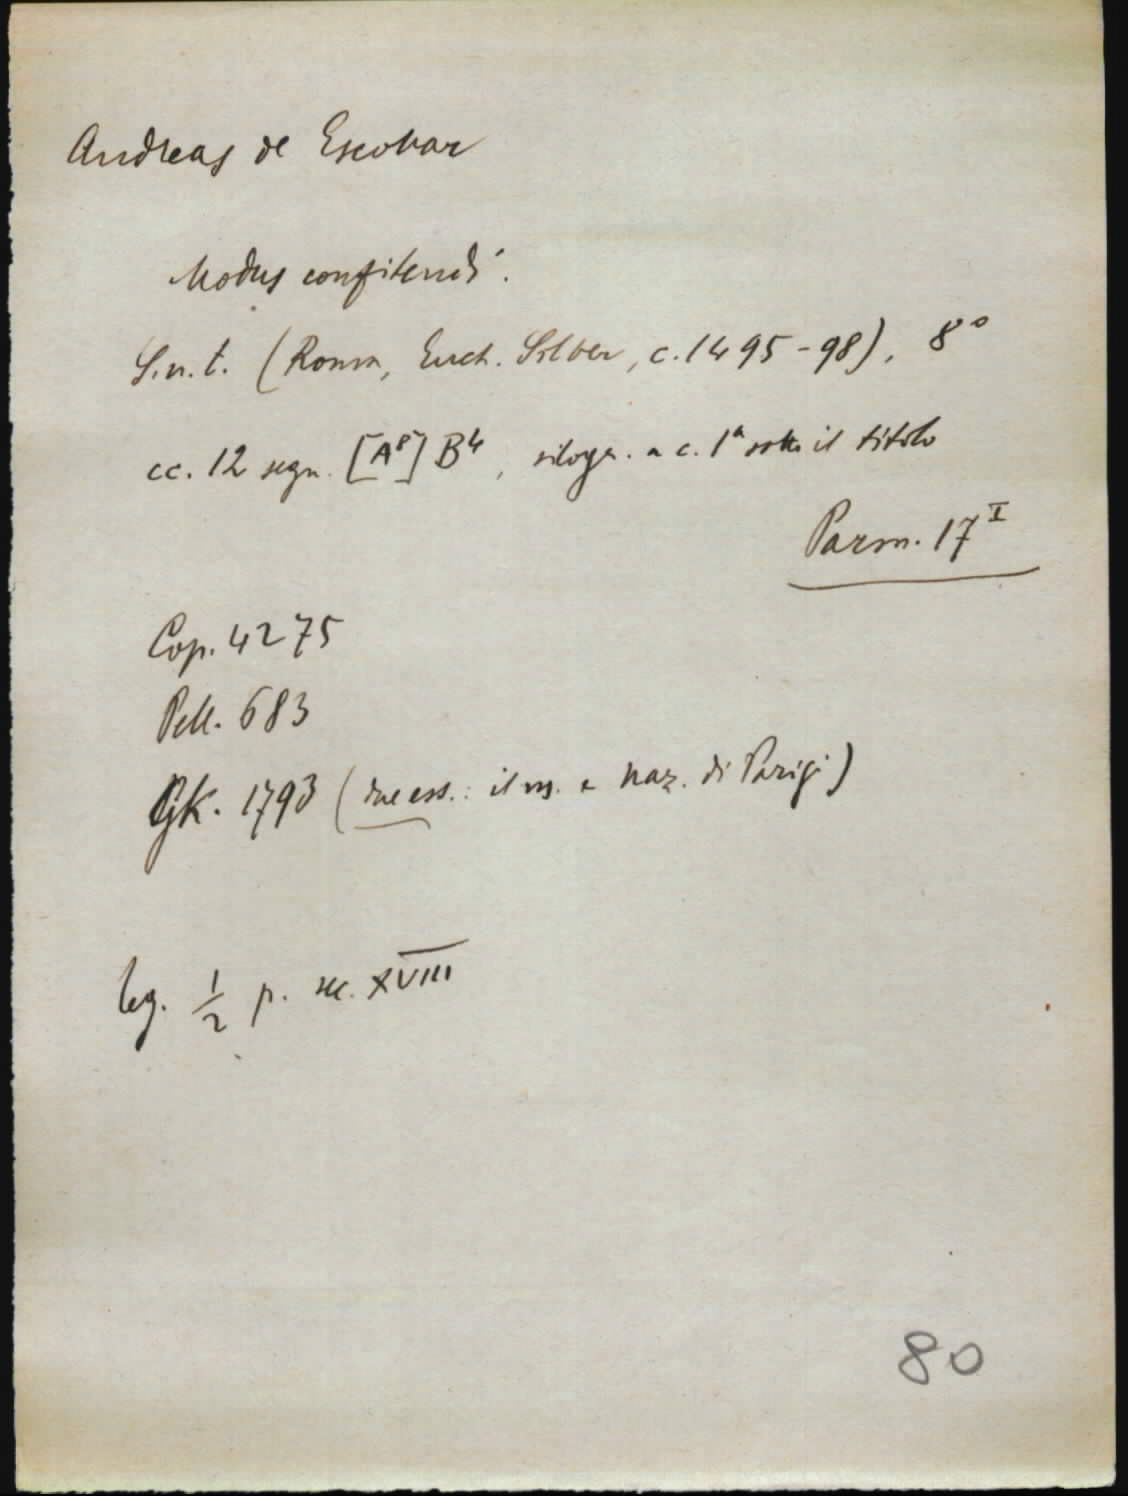 Andreas de Escobar
Modus confitendi.
S.n.t. (Roma, Euch. Silber, c. 1495-98), 8°
cc. 12 segn. [A⁸] B⁴, silogr. a c. 1ᵃ sotto il titolo
Parm. 17ᴵ
Cop. 4275
Pell. 683
GK. 1793 (due ess.: il ns. e Naz. di Parigi)
leg. ½ p. sec. XVIII
80